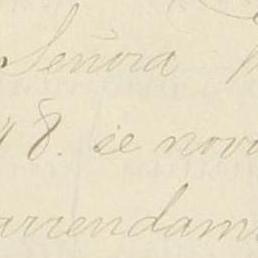 Señora
48. se nov
arrendam